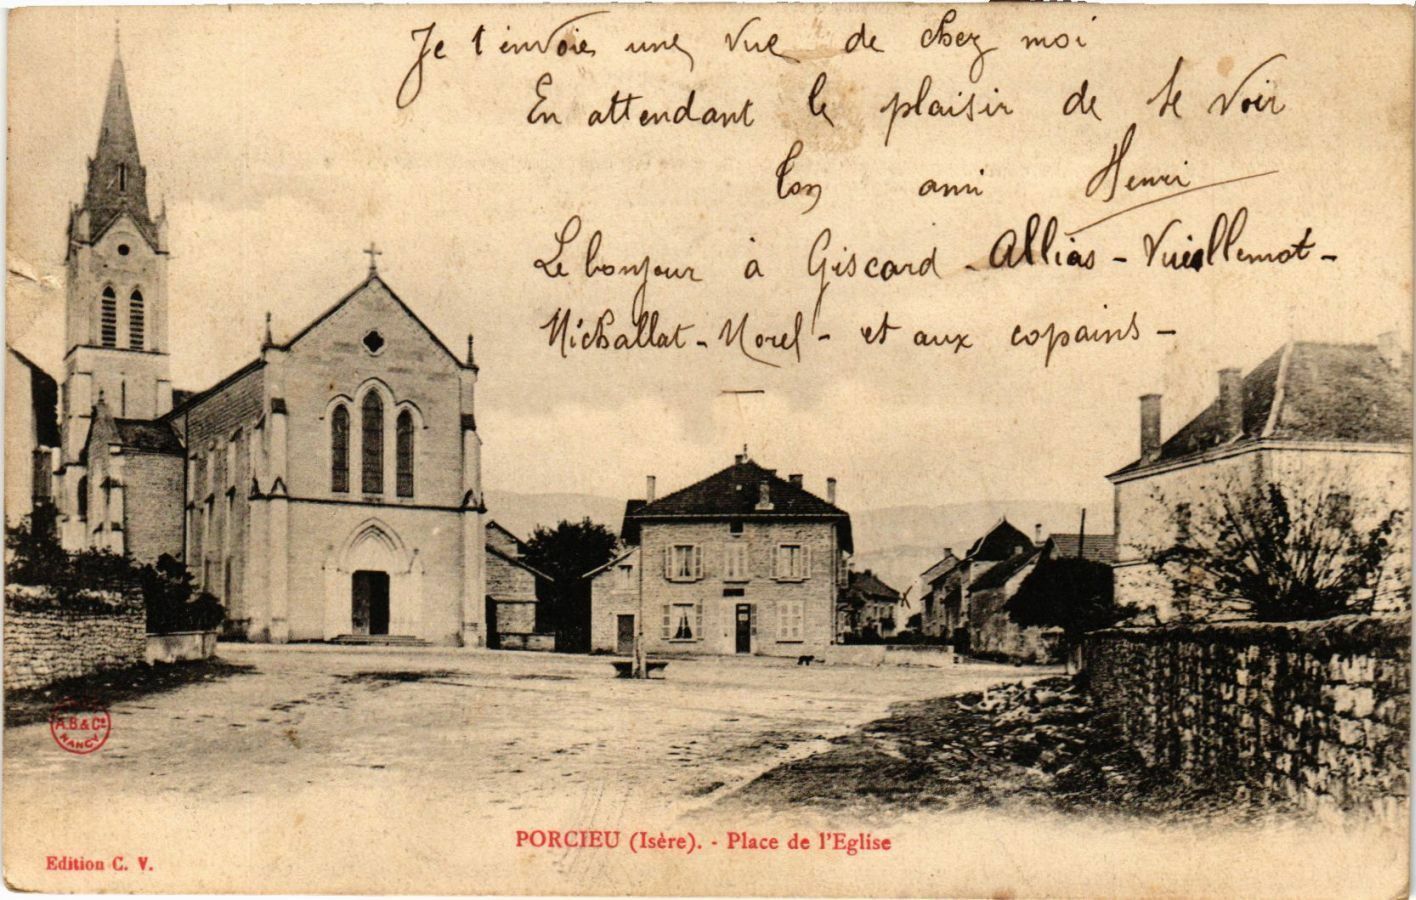 Je t'envoie une vue de chez moi
En attendant le plaisir de te voir
Ton ami Henri
Le bonjour à Giscard - Allias - Vuillemot -
Michallat - Morel - et aux copains -
A.B & Cie
NANCY
PORCIEU (Isère). - Place de l'Eglise
Edition C. V.